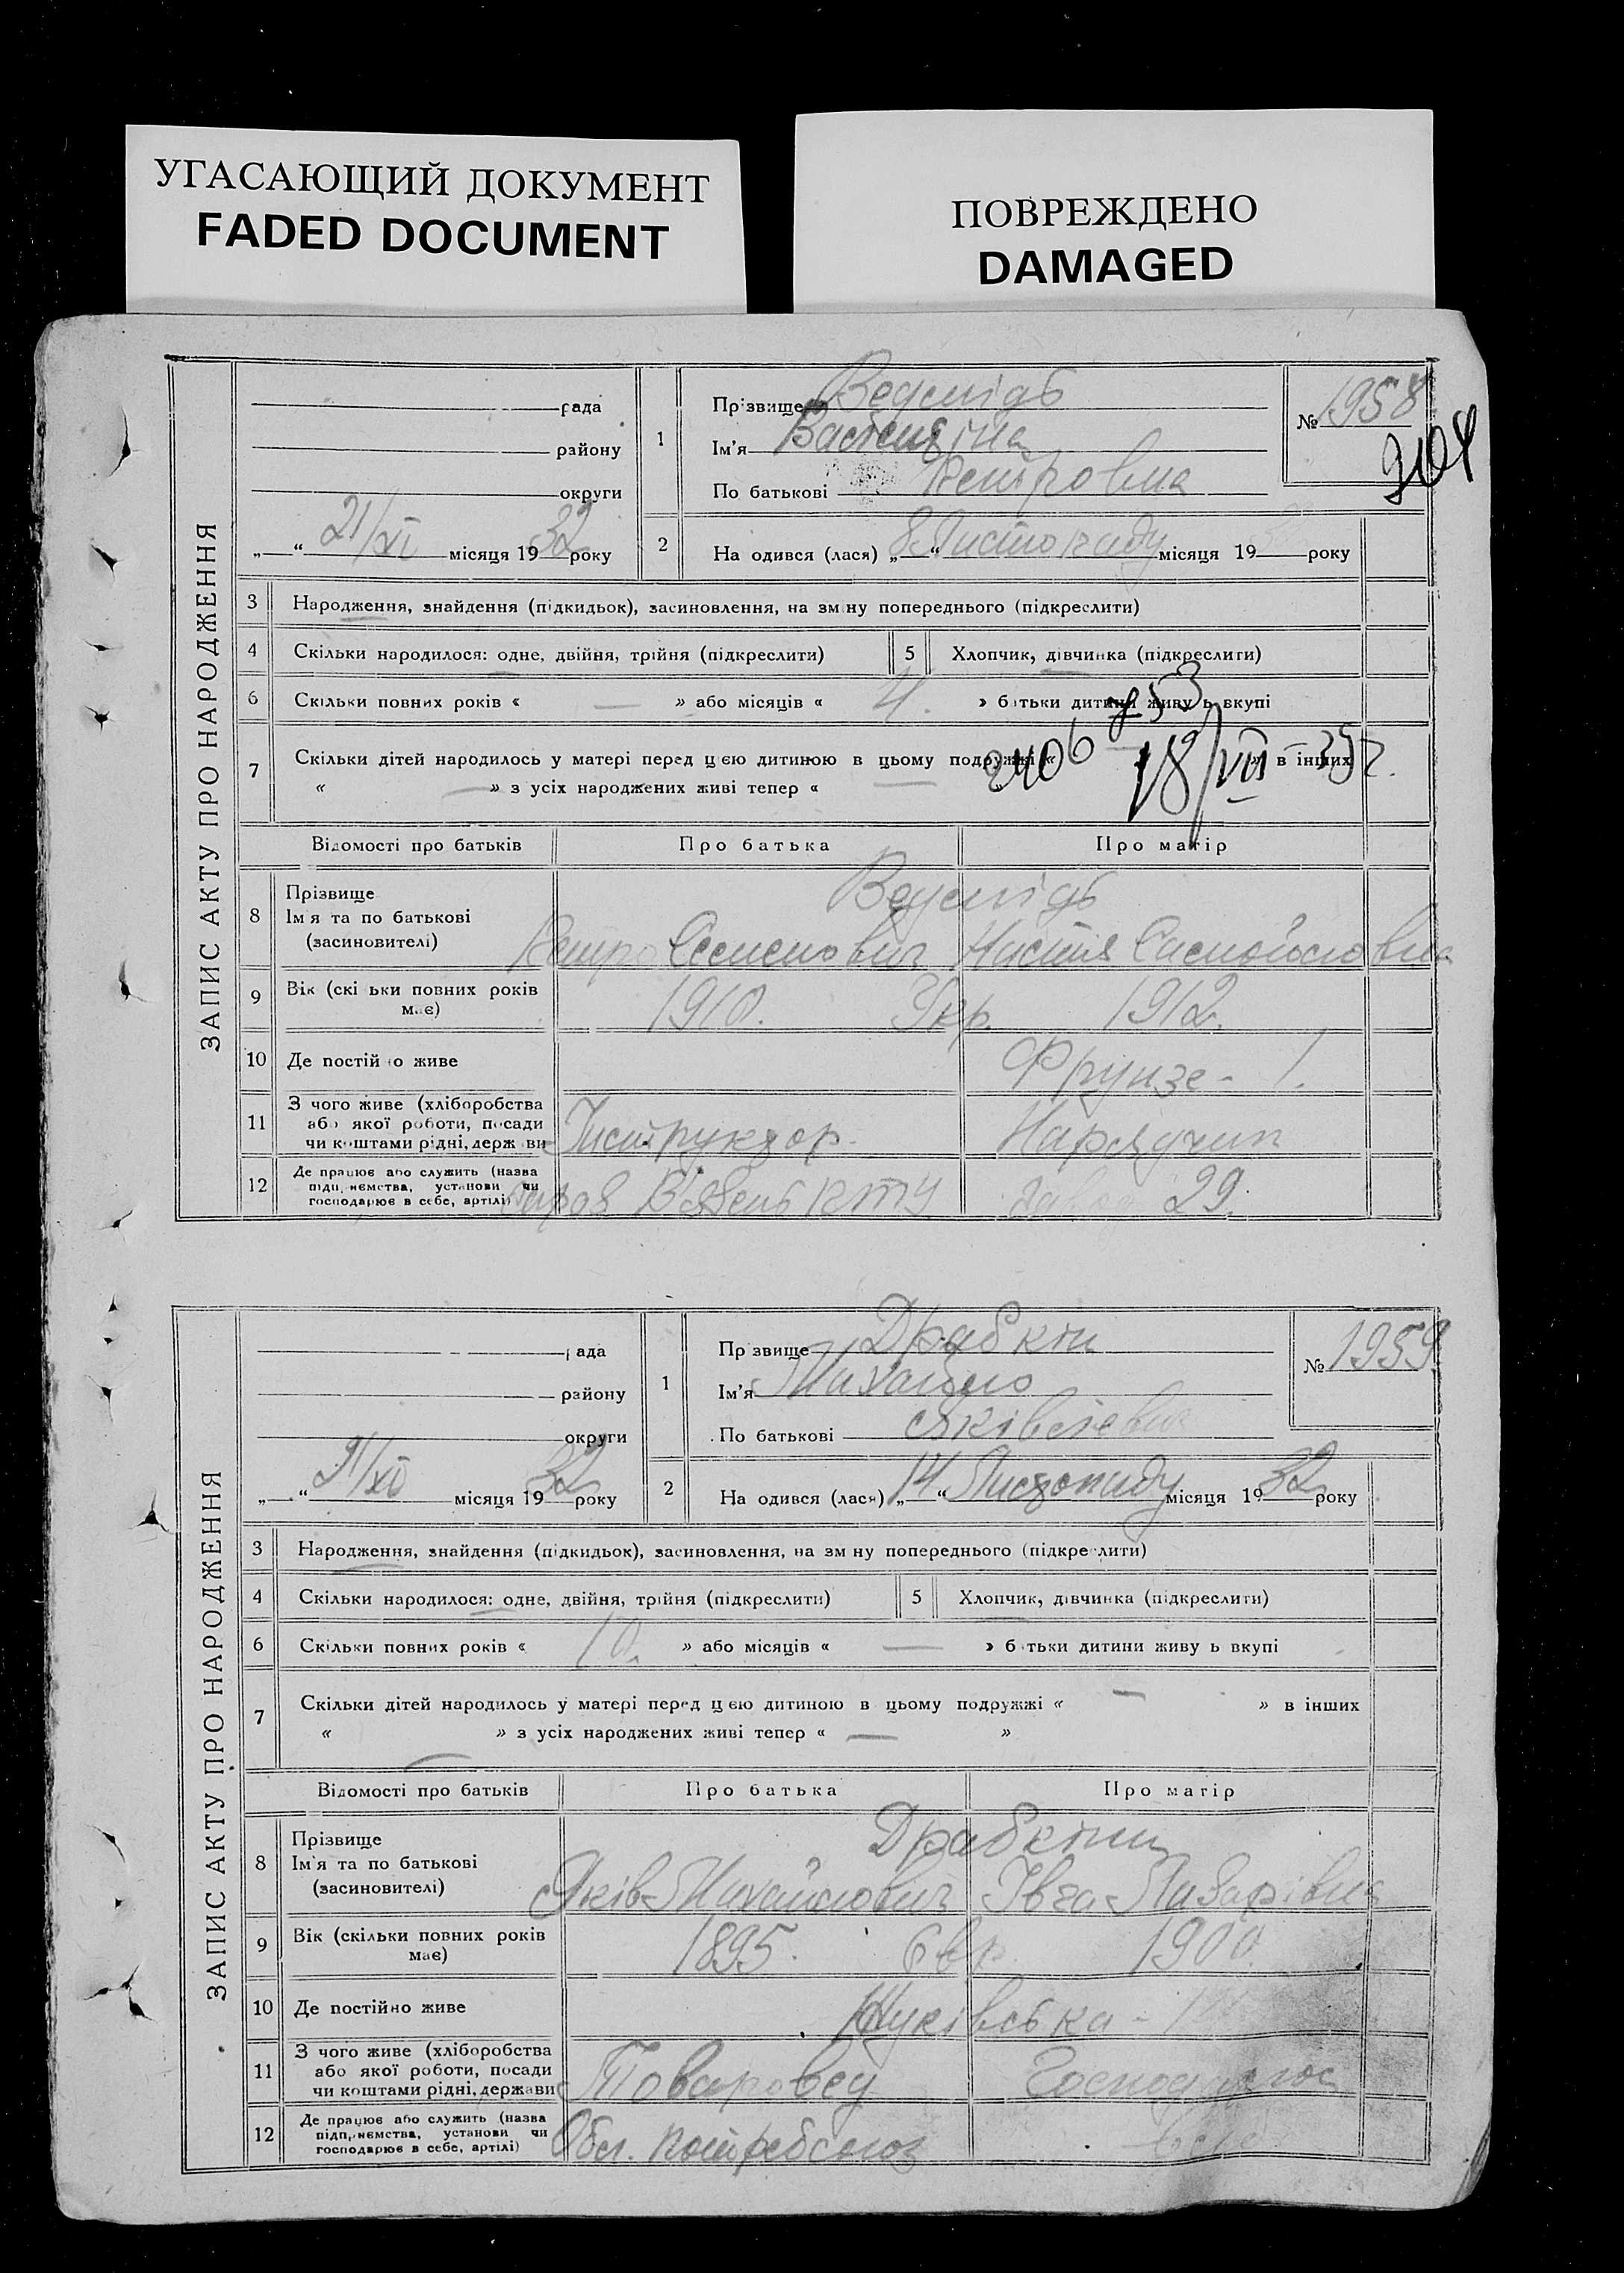 УГАСАЮЩИЙ ДОКУМЕНТ
FADED DOCUMENT
ПОВРЕЖДЕНО
DAMAGED
ЗАПИС АКТУ ПРО НАРОДЖЕННЯ
рада
району
округи
„ “ 21/XI місяця 1932 року
1
Прізвище Ведмідь
Ім'я
По батькові Петровна
№ 1958
2
На одився (лася) „8“ Листопаду місяця 19 року
3 Народження, знайдення (підкидьок), засиновлення, на зміну попереднього (підкреслити)
4 Скільки народилося: одне, двійня, трійня (підкреслити)
5 Хлопчик, дівчинка (підкреслити)
6 Скільки повних років « — » або місяців « 4. » батьки дитини живу ь вкупі
7 Скільки дітей народилось у матері перед цією дитиною в цьому подружжі « » в інших
« — » з усіх народжених живі тепер « —
2406 18/VII 35 г.
Відомості про батьків Про батька Про матір
8 Прізвище
Ім'я та по батькові
(засиновителі)
Ведмідь
Петро Семенович Настя
9 Вік (скі ьки повних років має)
1910. Укр. 1912.
10 Де постій о живе
Фрунзе - 1.
11 З чого живе (хліборобства
або якої роботи, посади
чи коштами рідні, держ ви
Інструктор
12 Де працює або служить (назва
підприємства, установи чи
господарює в себе, артілі)
29.
ЗАПИС АКТУ ПРО НАРОДЖЕННЯ
ада
району
округи
„ “ 21/XI місяця 1932 року
1
Пр звище Драбкін
Ім'я Михайло
По батькові Яківлевич
№ 1959
2
На одився (лася) „14“ Листопаду місяця 1932 року
3 Народження, знайдення (підкидьок), засиновлення, на зм ну попереднього (підкре лити)
4 Скільки народилося: одне, двійня, трійня (підкреслити)
5 Хлопчик, дівчинка (підкреслити)
6 Скільки повних років « 10. » або місяців « — » б тьки дитини живу ь вкупі
7 Скільки дітей народилось у матері перед цією дитиною в цьому подружжі « — » в інших
« » з усіх народжених живі тепер « — »
Відомості про батьків Про батька Про матір
8 Прізвище
Ім'я та по батькові
(засиновителі)
Драбкіни
Яків Михайлович Лазарівна
9 Вік (скільки повних років має)
1895. Євр. 1900.
10 Де постійно живе
11 З чого живе (хліборобства
або якої роботи, посади
чи коштами рідні, держави
Товаровед
12 Де працює або служить (назва
підприємства, установи чи
господарює в себе, артілі)
Обл. потребсоюз